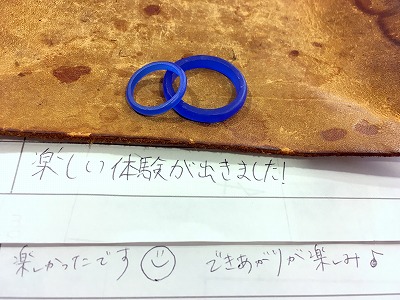 楽しい体験が出きました!
楽しかったです☺ できあがりが楽しみ♪